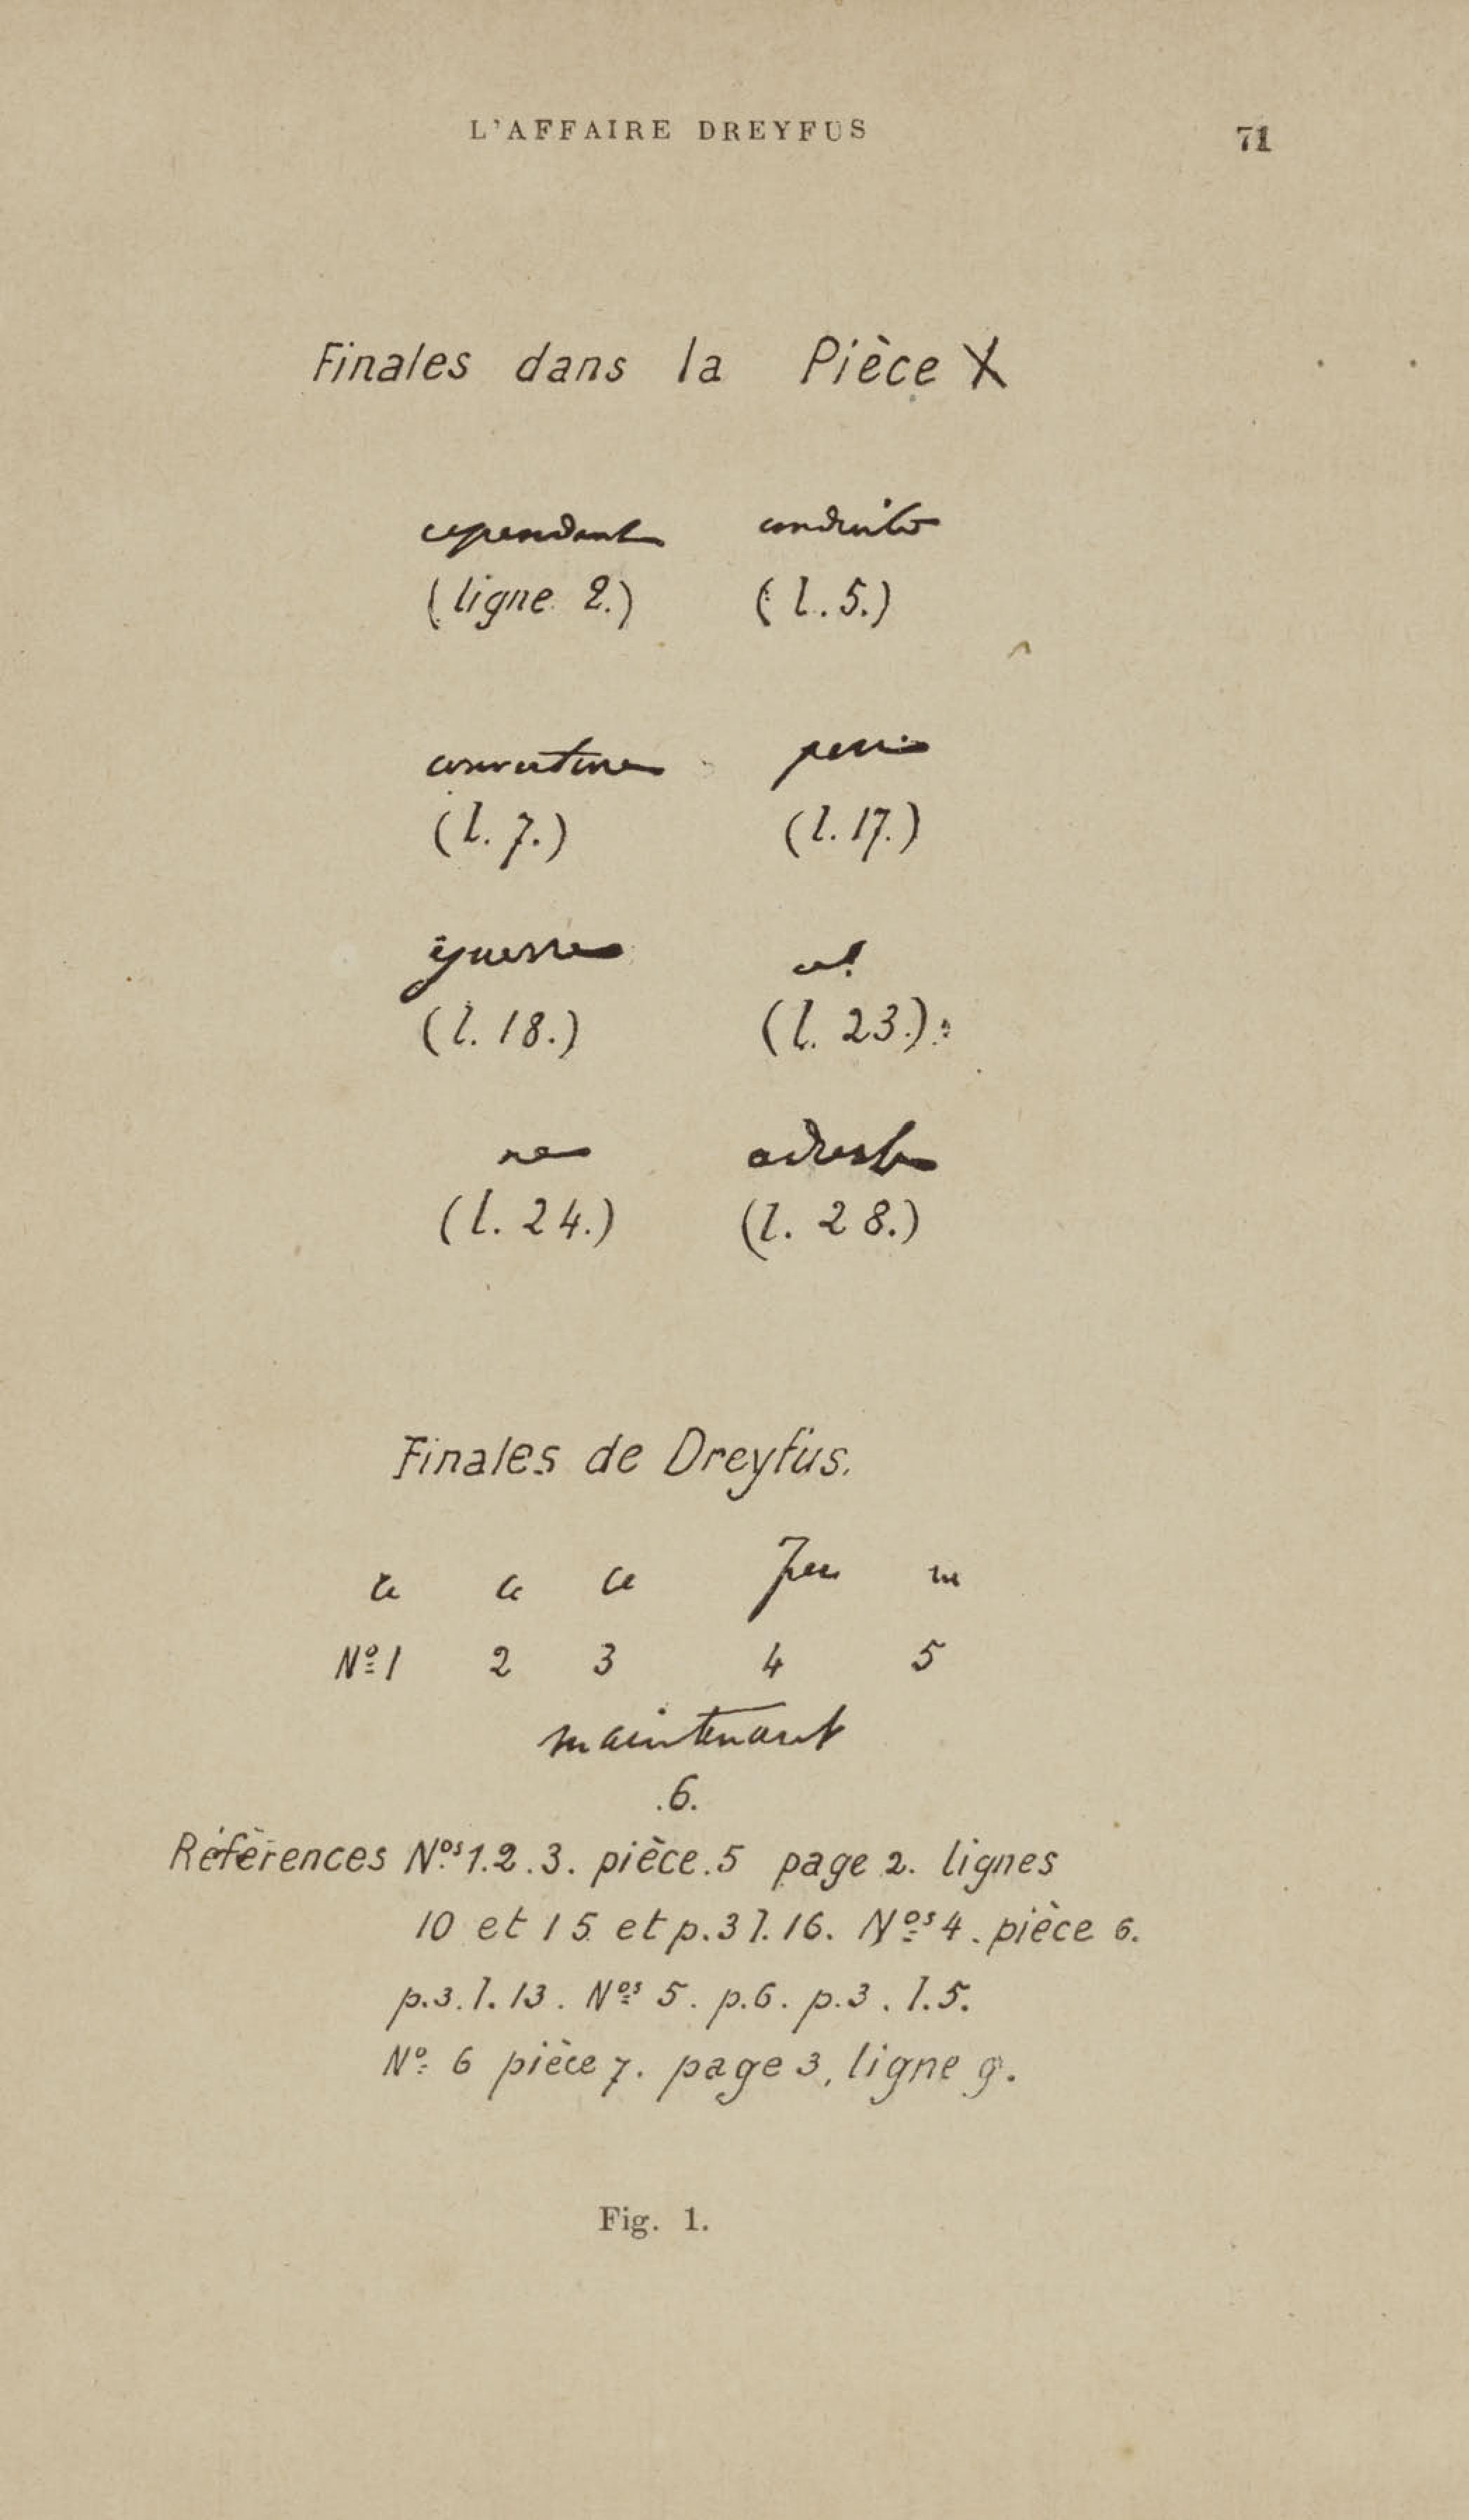 L'AFFAIRE DREYFUS 71
Finales dans la Pièce X
cependant conduite
(ligne 2.) (l. 5.)
couverture
(l. 7.) (l. 17.)
guerre et
(l. 18.) (l. 23.)
ne adresse
(l. 24.) (l. 28.)
Finales de Dreyfus.
ce ce ce
Nº 1 2 3 4 5
maintenant
.6.
Références Nos 1.2.3. pièce.5 page 2. lignes
10 et 15 et p.3 l.16. Nos 4. pièce 6.
p.3.l.13. Nos 5. p.6. p.3. l.5.
Nº 6 pièce 7. page 3, ligne 9.
Fig. 1.